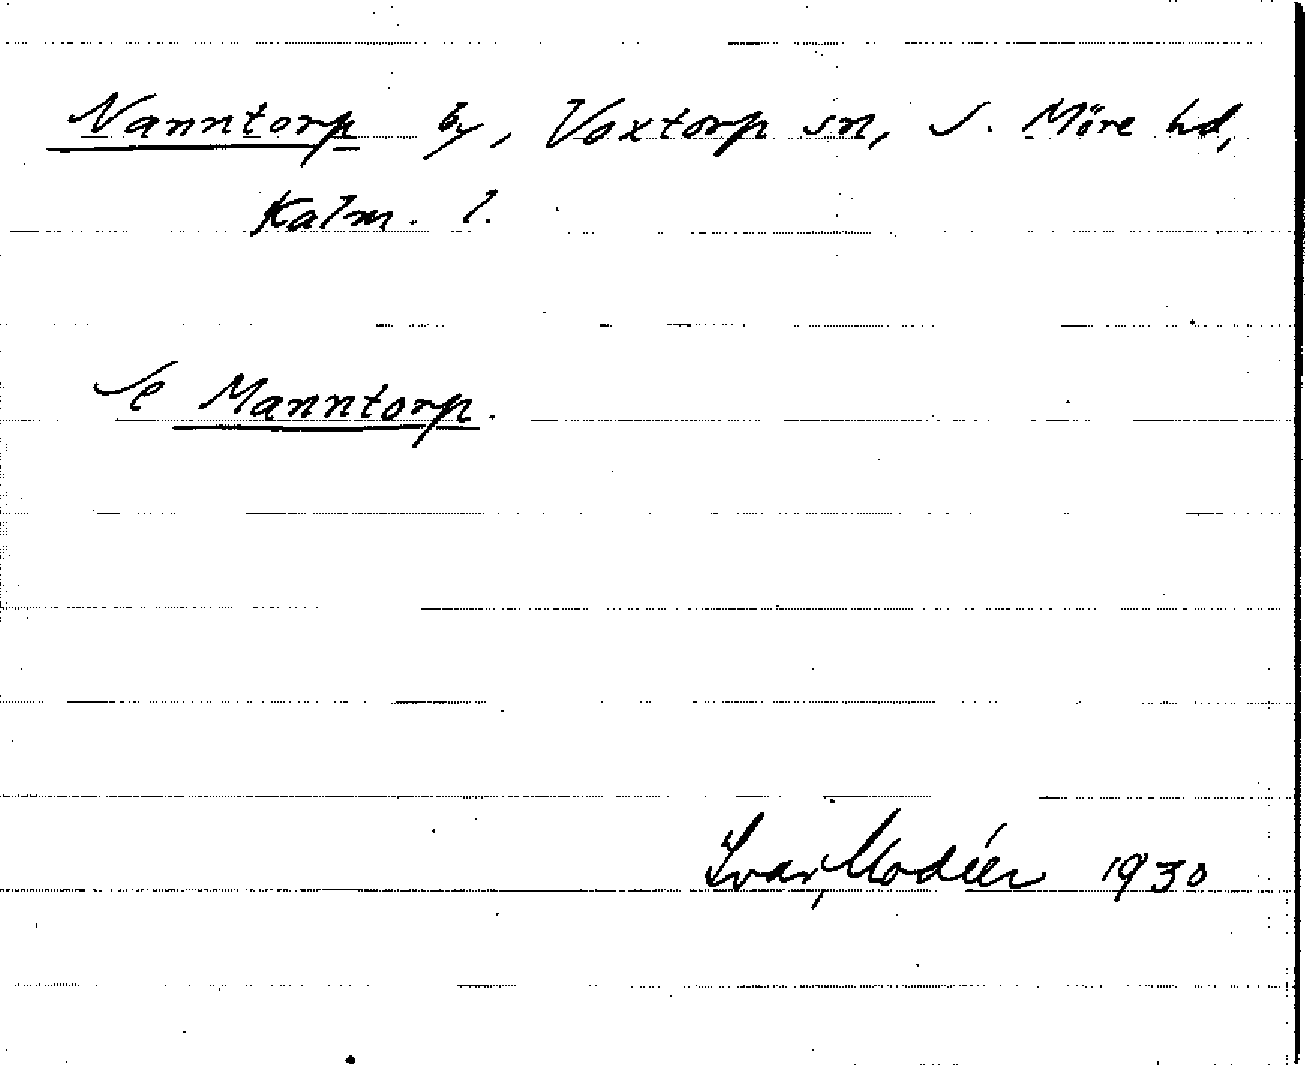 Nanntorp by, Voxtorp sn, S. Möre hd,
Kalm. l.
Se Manntorp.
Ivar Modéer 1930